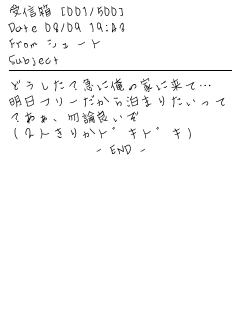 受信箱 [001/500]
Date 08/09 19:48
From シュート
Subject
どうした?急に俺の家に来て…
明日フリーだから泊まりたいって
?あぁ、勿論良いぞ
(2人きりかドキドキ)
- END -